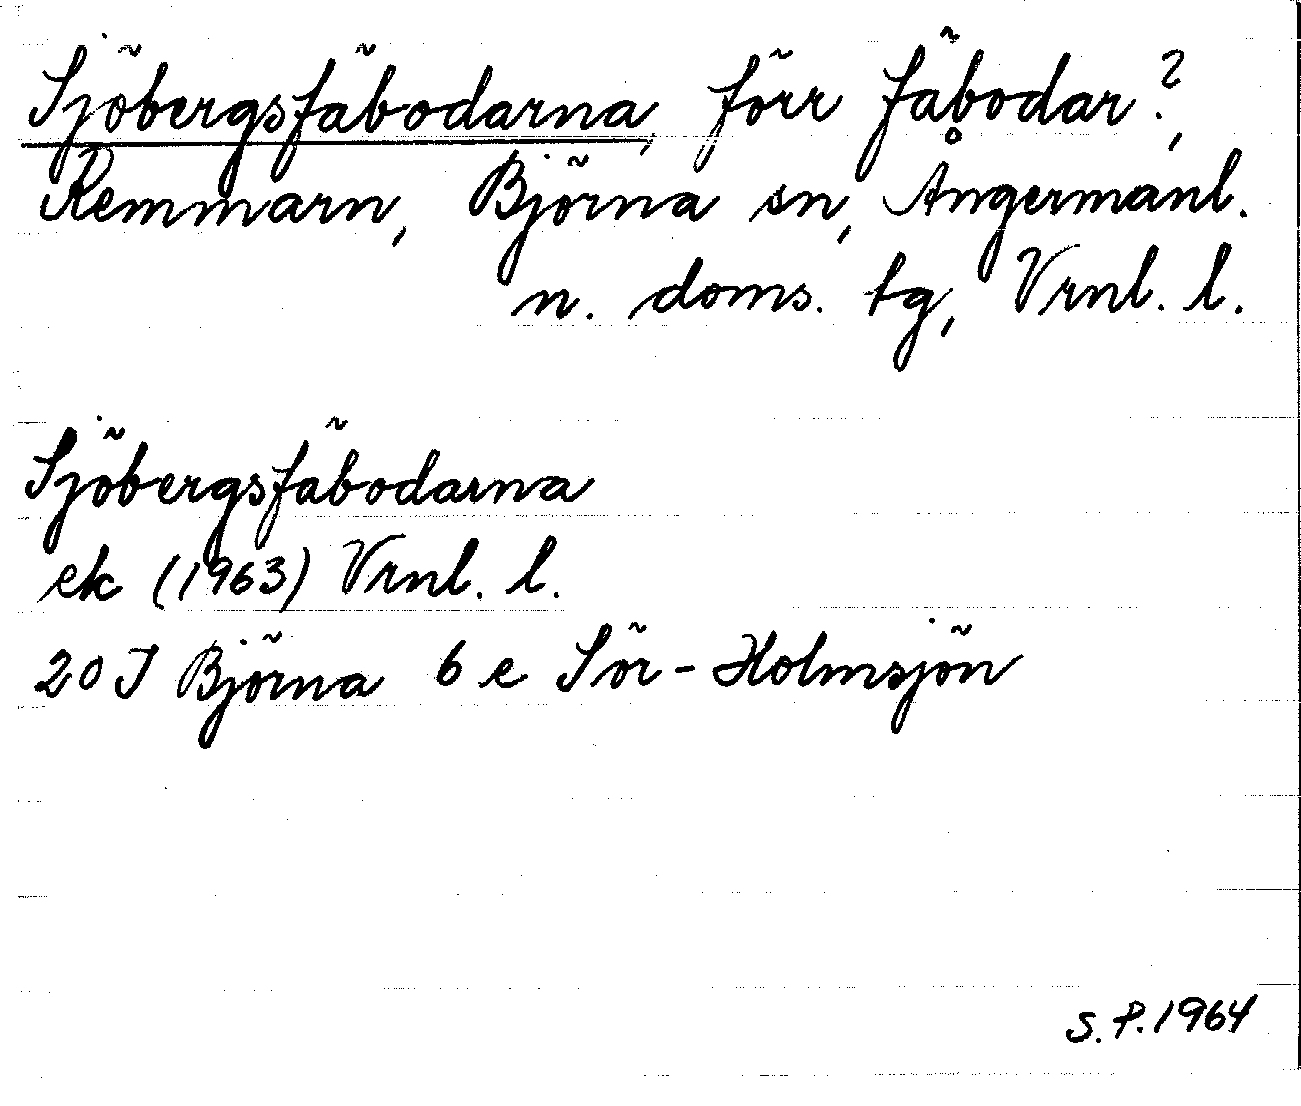 Sjöbergsfäbodarna, förr fäbodar?,
Remmarn, Björna sn, Ångermanl.
n. doms. tg, Vrnl. l.
Sjöbergsfäbodarna
ek (1963) Vrnl. l.
20 J Björna 6 e Sör-Holmsjön
S.P. 1964